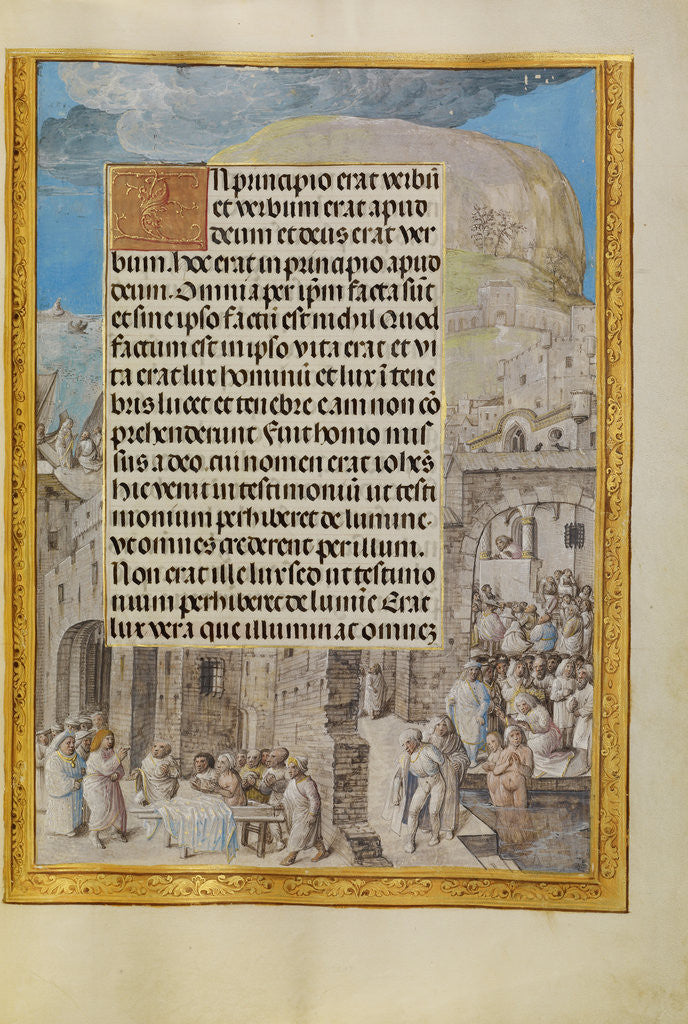 IN principio erat verbū
et verbum erat apud
deum et deus erat ver
bum. hoc erat in principio apud
deum. Omnia per ip̄m facta sūt
et sine ipso factū est nichil Quod
factum est in ipso vita erat et vi
ta erat lux hominū et lux ī tene
bris lucet et tenebre eam non cō
prehenderunt Fuit homo mis
sus a deo. cui nomen erat iohēs
hic venit in testimoniū ut testi
monium perhiberet de lumine.
vt omnes crederent per illum.
Non erat ille lux sed ut testimo
nium perhiberet de lumīe Erat
lux vera que illuminat omneʒ